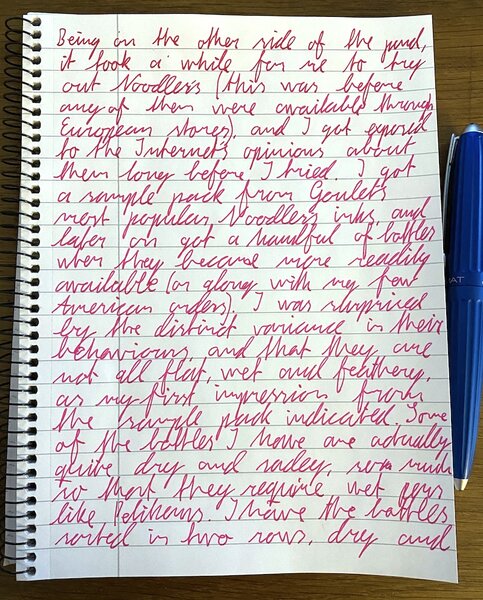 Being on the other side of the pond,
it took a while for me to try
out Noodlers (this was before
any of them were available through
European stores), and I got exposed
to the Internet's opinions about
them long before I tried. I got
a sample pack from Goulets
most popular Noodlers inks, and
later on got a handful of bottles
when they became more readily
available (or along with my few
American orders). I was surprised
by the distinct variance in their
behaviours, and that they are
not all flat, wet and feathery,
as my first impression from
the sample pack indicated. Some
of the bottles I have are actually
quite dry and so much
so that they require wet pens
like Pelikans. I have the bottles
sorted in two rows, dry and
AT